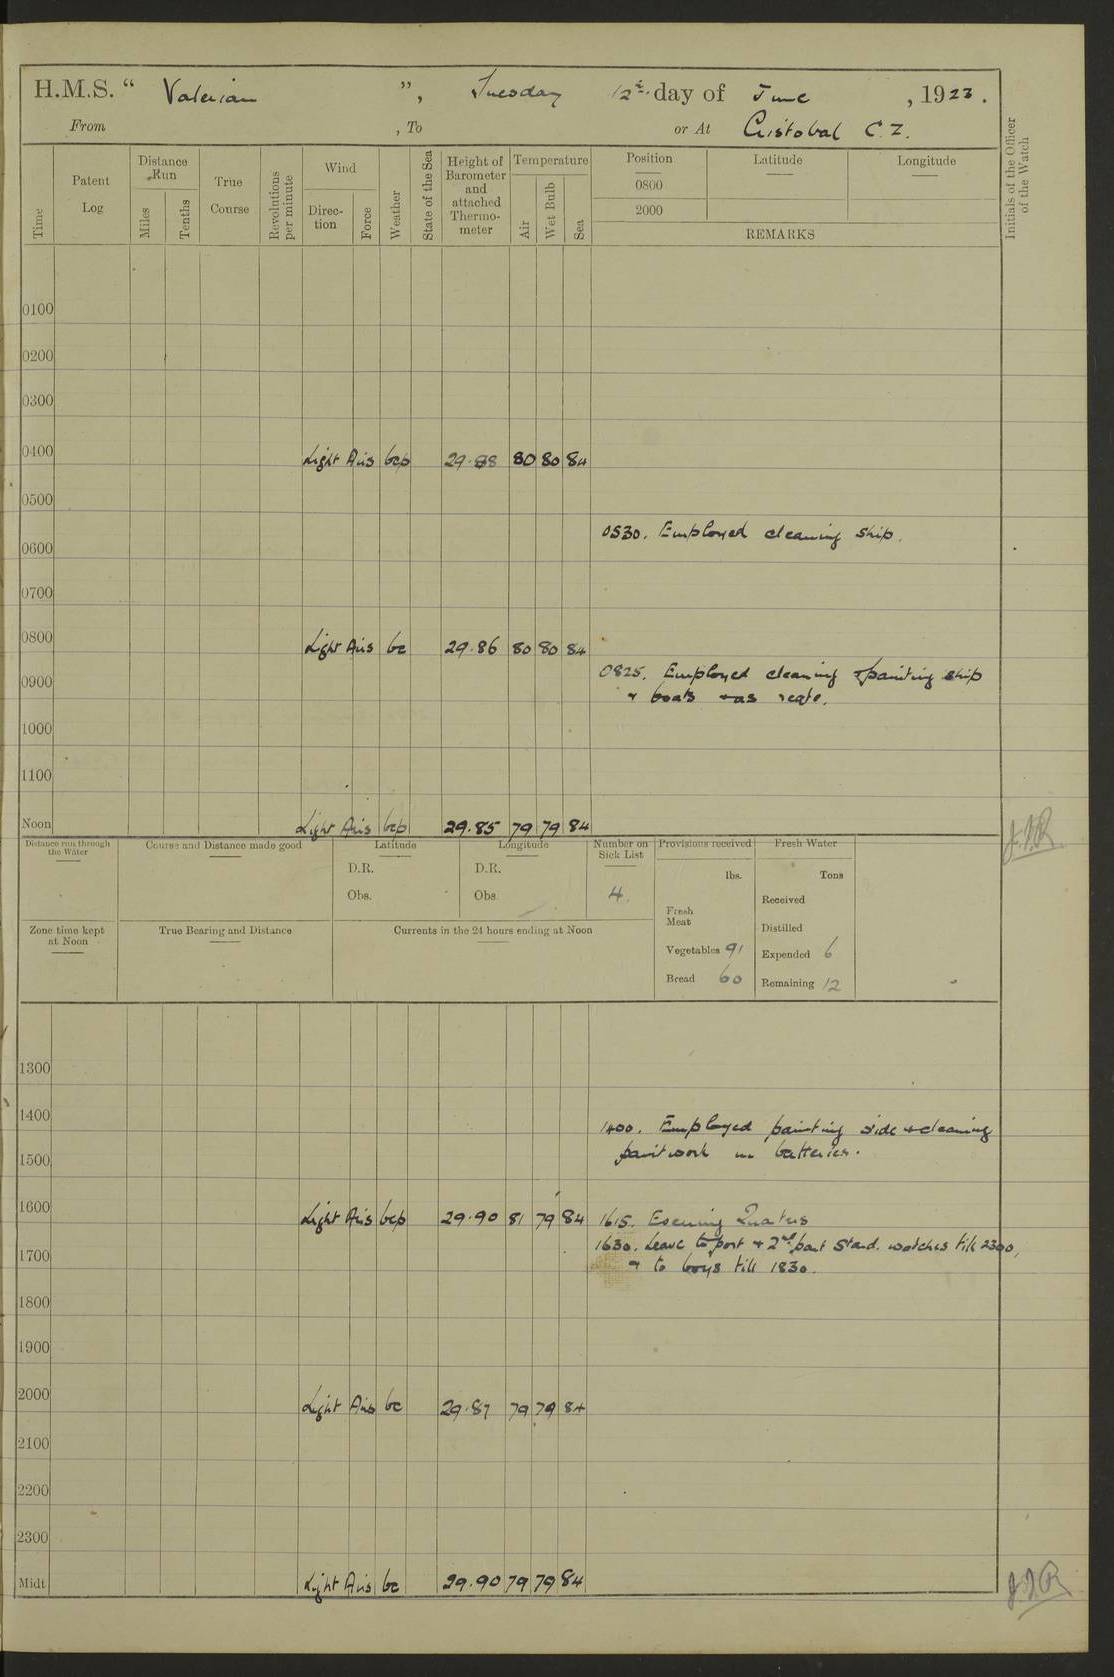 H.M.S. “ Valerian ”, Tuesday 12th day of June, 1923.
From , To or At Cristobal C.Z.
Initials of the Officer of the Watch
Time
Patent Log
Distance Run
Miles
Tenths
True Course
Revolutions per minute
Wind
Direc-tion
Force
Weather
State of the Sea
Height of Barometer and attached Thermo-meter
Temperature
Air
Wet Bulb
Sea
Position Latitude Longitude
0800
2000
REMARKS
0100
0200
0300
0400 Light Airs bcp 29.88 80 80 84
0500
0530. Employed cleaning ship.
0600
0700
0800 Light Airs bc 29.86 80 80 84
0825. Employed cleaning & painting ship
0900
& boats & as reqte.
1000
1100
Noon Light Airs bcp 29.85 79 79 84
J.J.R.
Distance run through the Water
Course and Distance made good
Latitude
D.R.
Obs.
Longitude
D.R.
Obs.
Number on Sick List
4.
Provisions received
lbs.
Fresh Meat
Vegetables 91
Bread 60
Fresh Water
Tons
Received
Distilled
Expended 6
Remaining 12
Zone time kept at Noon
True Bearing and Distance
Currents in the 24 hours ending at Noon
1300
1400
1400. Employed painting side & cleaning
paintwork in batteries.
1500
1600 Light Airs bcp 29.90 81 79 84
1615. Evening Quarters
1630. Leave to port & 2nd part Stard. watches till 2300,
1700
& to boys till 1830.
1800
1900
2000 Light Airs bc 29.87 79 79 84
2100
2200
2300
Midt Light Airs bc 29.90 79 79 84
J.J.R.